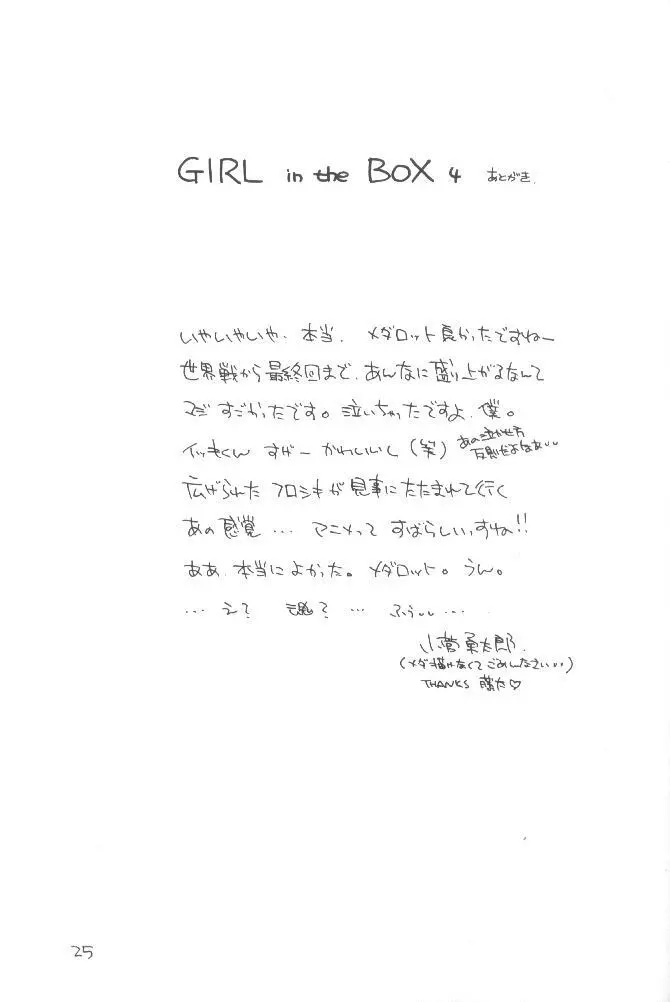 GIRL in the BOX 4 あとがき.
いやいやいや、本当、メダロット良かったですねー
世界戦から最終回まで、あんなに盛り上がるなんて
マジすごかったです。泣いちゃったですよ、僕。
イッキくん すげー かわいいし(笑) あの泣かせ方
反則だよなあ‥
広げられた フロシキが見事にたたまれて行く
あの感覚 … アニメって すばらしいっすね!!
ああ、本当によかった。メダロット。うん。
… え? 魂? … ふぅ‥ …
小菅勇太郎.
(メダ描けなくてごめんなさい‥)
THANKS 藤た♡
25